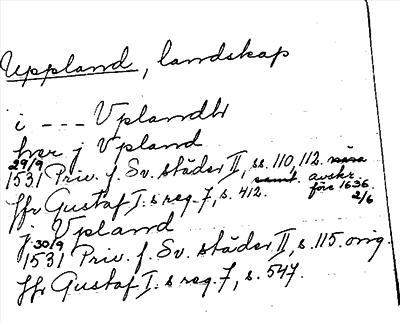 Uppland, landskap
i --- Vplandh
hwar j Vpland
29/9
1531 Priv. f. Sv. städer II, ss. 110, 112. avskr. före 1636.
jfr Gustaf I:s reg. 7, s. 412. 2/6
j Vpland
30/9
1531 Priv. f. Sv. städer II, s. 115. orig.
jfr Gustaf I:s reg. 7, s. 547.